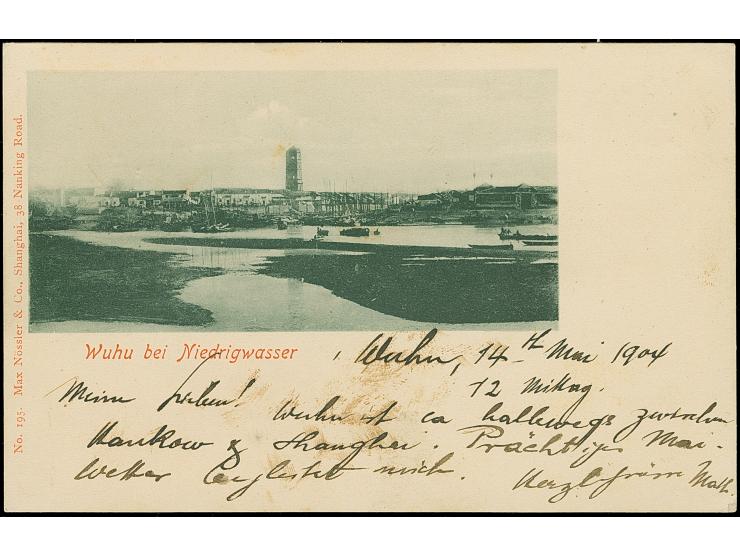 No. 195. Max Nössler & Co., Shanghai, 38 Nanking Road.
Wuhu bei Niedrigwasser
Wuhu, 14th Mai 1904
12 Mittag.
Meine Lieben! Wuhu ist ca halbwegs zwischen
Hankow & Shanghai. Prächtiges Mai-
Wetter begleitet mich. Herzl. Grüsse